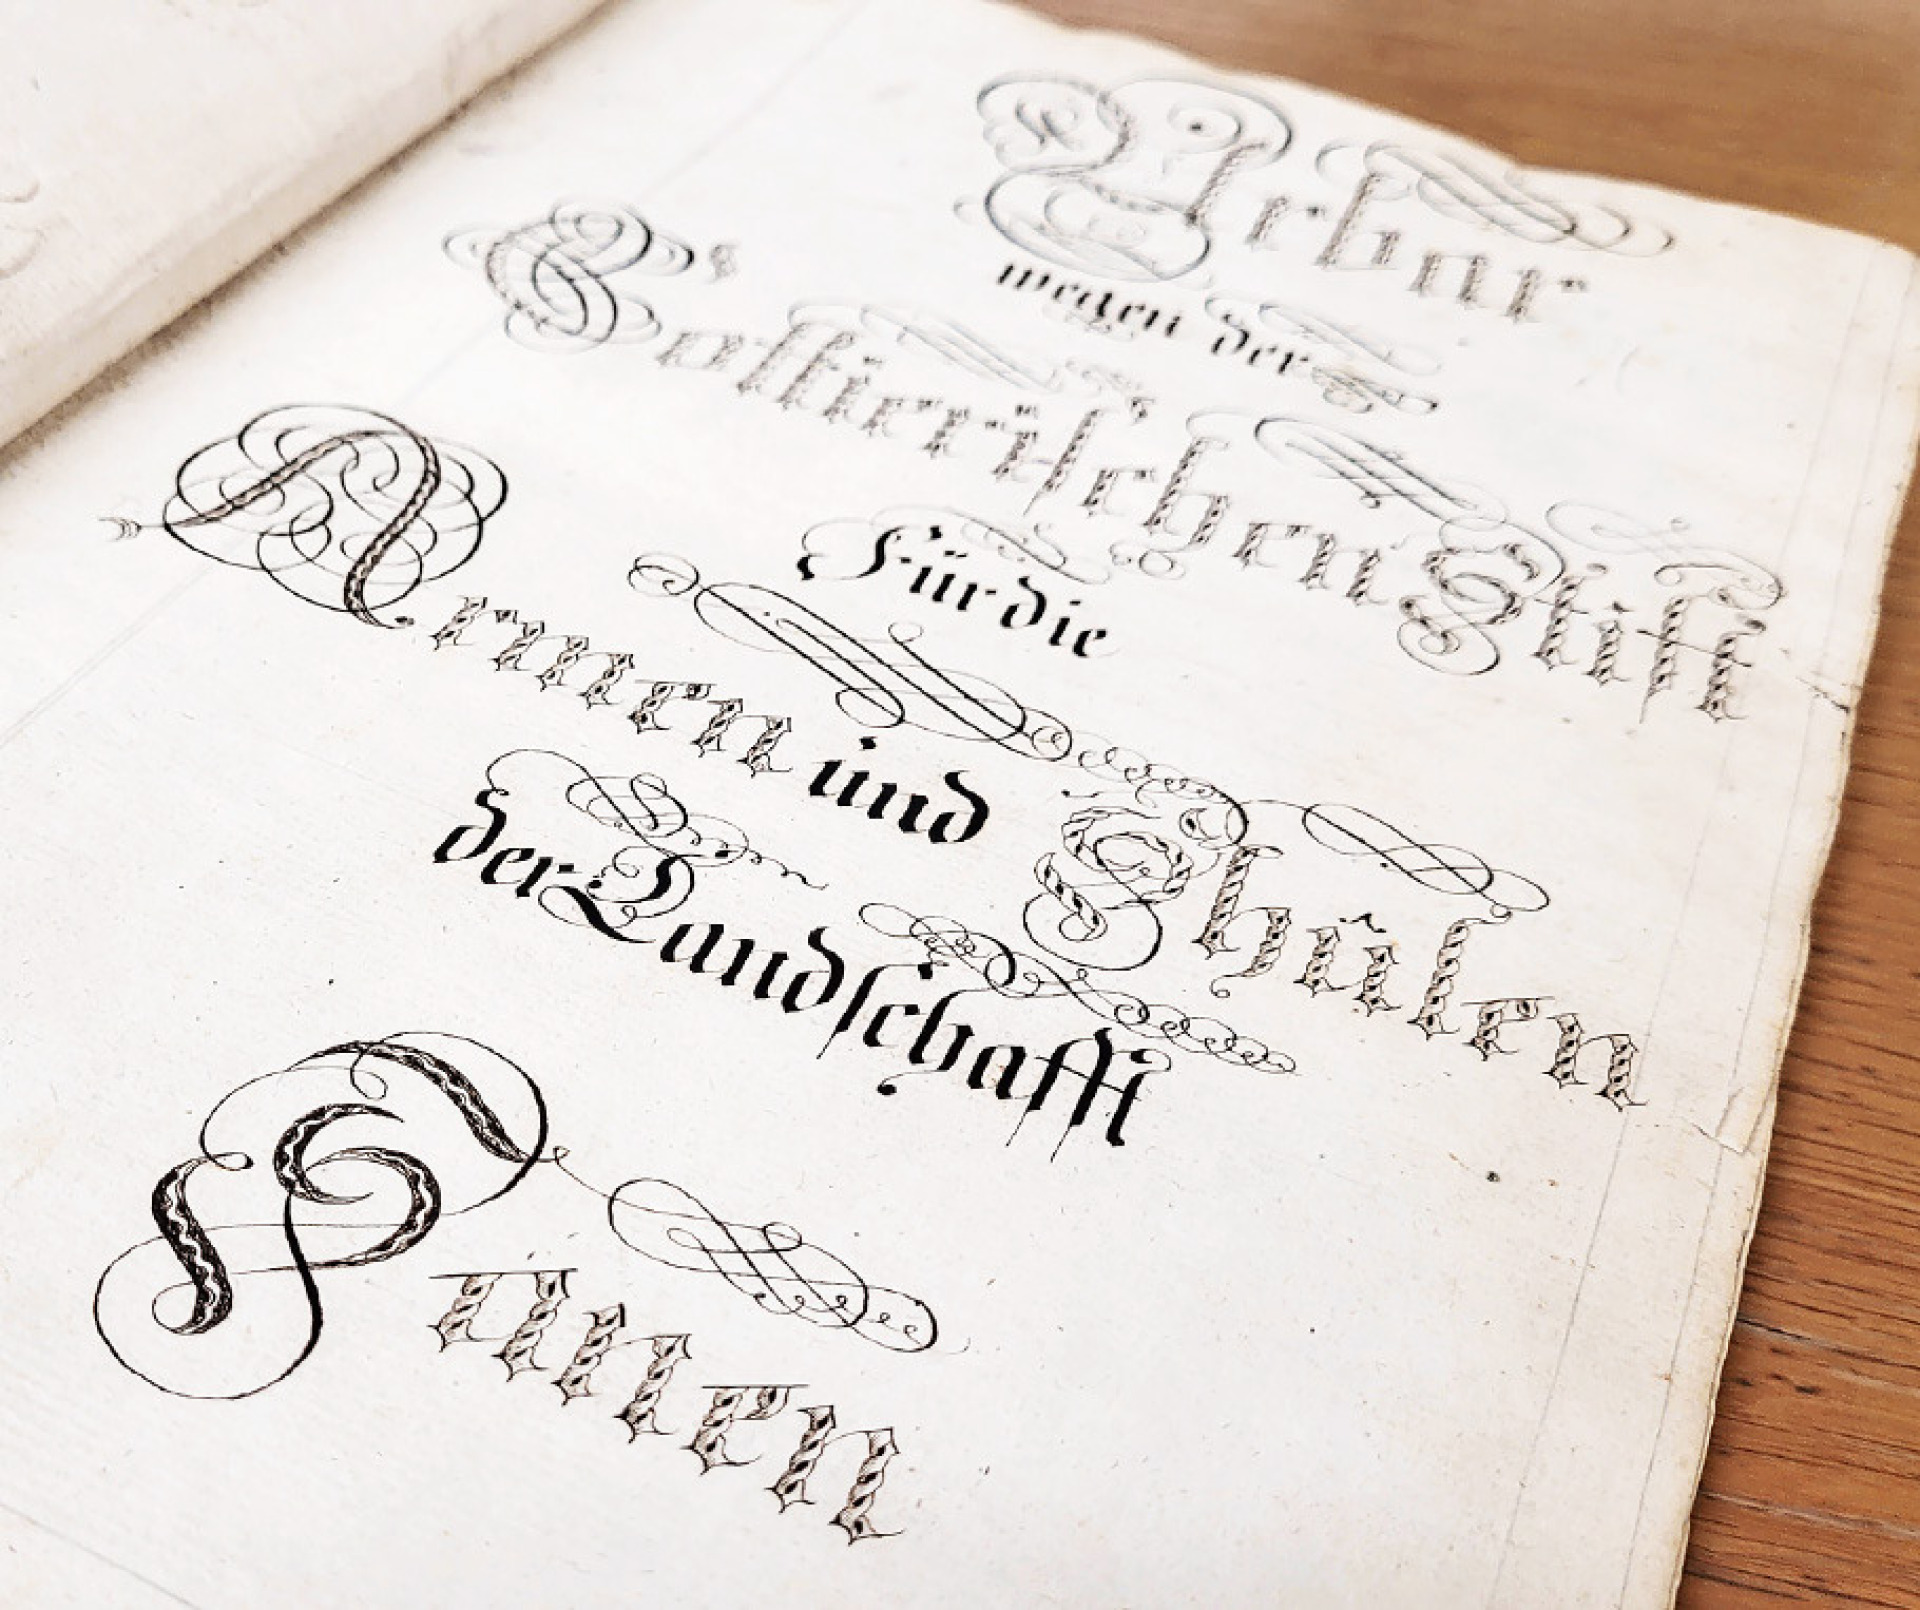 Urbar
wegen der
Cottierischen Stift
Für die
Armen und Shülen
der Landschafft
Sanen